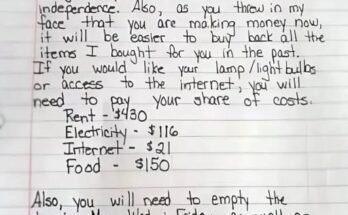 independence. Also, as you threw in my
face that you are making money now,
it will be easier to buy back all the
items I bought for you in the past.
If you would like your lamp/light bulbs
or access to the internet, you will
need to pay your share of costs.
Rent - $430
Electricity - $116
Internet - $21
Food - $150
Also, you will need to empty the